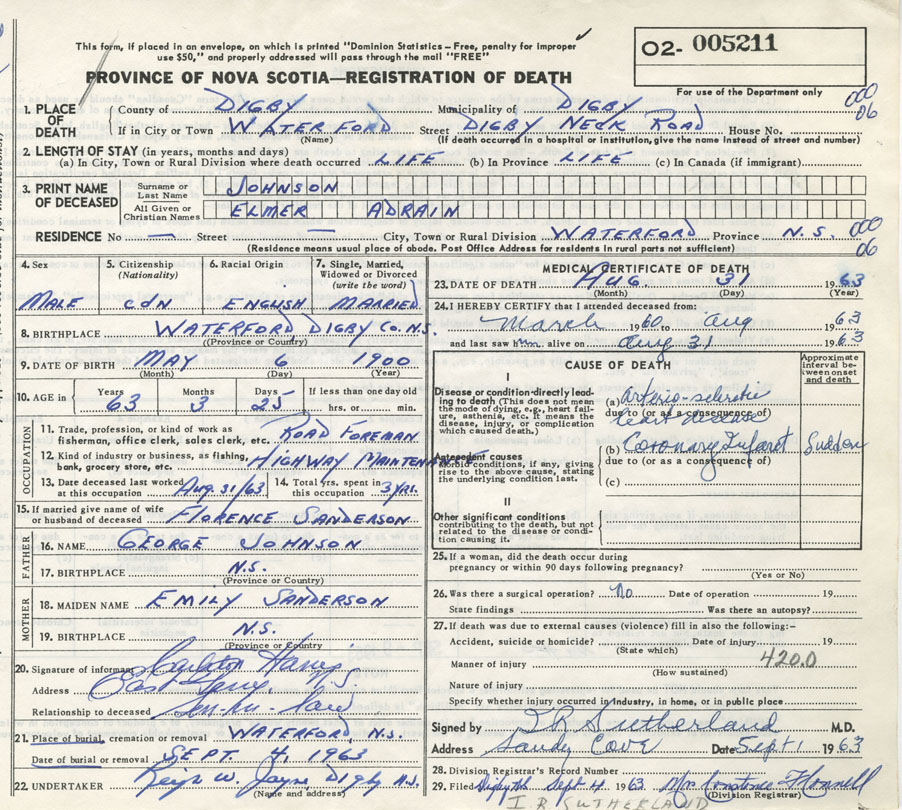 This form, if placed in an envelope, on which is printed "Dominion Statistics – Free, penalty for improper
use $50," and properly addressed will pass through the mail "FREE"
PROVINCE OF NOVA SCOTIA—REGISTRATION OF DEATH
02- 005211
For use of the Department only
000
06
1. PLACE OF DEATH
County of DIGBY Municipality of DIGBY
If in City or Town WATERFORD Street DIGBY NECK ROAD House No.
(Name) (If death occurred in a hospital or institution, give the name instead of street and number)
2. LENGTH OF STAY (in years, months and days)
(a) In City, Town or Rural Division where death occurred LIFE (b) In Province LIFE (c) In Canada (if immigrant)
3. PRINT NAME OF DECEASED
Surname or Last Name JOHNSON
All Given or Christian Names ELMER ADRAIN
RESIDENCE No — Street — City, Town or Rural Division WATERFORD Province N.S.
(Residence means usual place of abode. Post Office Address for residents in rural parts not sufficient)
000
06
4. Sex MALE
5. Citizenship (Nationality) CDN
6. Racial Origin ENGLISH
7. Single, Married, Widowed or Divorced (write the word) MARRIED
8. BIRTHPLACE WATERFORD DIGBY CO. N.S.
(Province or Country)
9. DATE OF BIRTH MAY 6 1900
(Month) (Day) (Year)
10. AGE Years 63 Months 3 Days 25 If less than one day old hrs. or min.
OCCUPATION
11. Trade, profession or kind of work as fisherman, office clerk, sales clerk, etc. ROAD FOREMAN
12. Kind of industry or business, as fishing, bank, grocery store, etc. HIGHWAY MAINTENANCE
13. Date deceased last worked at this occupation AUG. 31/63
14. Total yrs. spent in this occupation 3 YRS.
15. If married give name of wife or husband of deceased FLORENCE SANDERSON
FATHER
16. NAME GEORGE JOHNSON
17. BIRTHPLACE N.S.
(Province or Country)
MOTHER
18. MAIDEN NAME EMILY SANDERSON
19. BIRTHPLACE N.S.
(Province or Country)
20. Signature of informant
Address
Relationship to deceased Son-in-law
21. Place of burial, cremation or removal WATERFORD, N.S.
Date of burial or removal SEPT. 4, 1963
22. UNDERTAKER W. Jayne, Digby N.S.
(Name and address)
MEDICAL CERTIFICATE OF DEATH
23. DATE OF DEATH Aug. 31 1963
(Month) (Day) (Year)
24. I HEREBY CERTIFY that I attended deceased from:
March 1960 to Aug 1963
and last saw him alive on Aug 31 1963
CAUSE OF DEATH
Approximate interval between onset and death
I
Disease or condition directly leading to death (This does not mean the mode of dying, e.g., heart failure, asthenia, etc. It means the disease, injury, or complication which caused death.)
(a) Arterio-sclerotic heart disease
due to (or as a consequence of)
Antecedent causes
Morbid conditions, if any, giving rise to the above cause, stating the underlying condition last.
(b) Coronary Infarct Sudden
due to (or as a consequence of)
(c)
II
Other significant conditions
contributing to the death, but not related to the disease or condition causing it
25. If a woman, did the death occur during pregnancy or within 90 days following pregnancy?
(Yes or No)
26. Was there a surgical operation? No Date of operation 19
State findings Was there an autopsy?
27. If death was due to external causes (violence) fill in also the following:-
Accident, suicide or homicide? Date of injury 19
(State which)
Manner of injury 420.0
(How sustained)
Nature of injury
Specify whether injury occurred in industry, in home, or in public place
Signed by I R Sutherland M.D.
Address Sandy Cove Date Sept 1 1963
28. Division Registrar's Record Number
29. Filed Sept 4 1963 Mrs
(Division Registrar)
I. R. SUTHERLAND